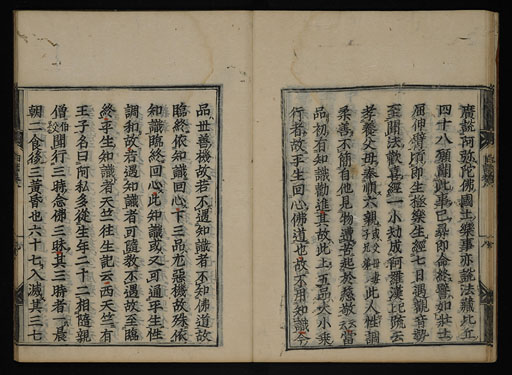 廣說阿弥陀佛國土樂事亦說法藏比丘
四十八願聞此事已尋即命終譬如壯士
屈伸臂頃即生極樂生經七日遇觀音勢
至聞法歡喜經一小劫成阿羅漢
孝養父母奉順六親此人性調
柔善不簡自他見物遭苦起於慈敬
品初有知識勸進其故此上五品大小乘
行者故平生回心佛道也故不用知識今
品世善機故若不遇知識者不知佛道故
臨終依知識回心下三品危惡機故殊依
知識臨終回心此知識或又可通平生性
調和故若遇知識者可隨教不遇故至臨
終平生知識者天竺往生記云西天竺有
王子名曰阿私多從生年二十二相隨親
僧聞行三時念佛三昧其三時者一晨
朝二食後三黃昏也六十七入滅其三七